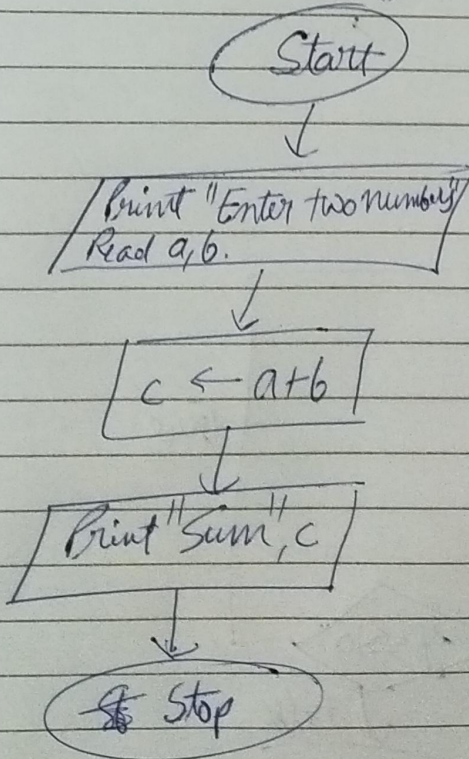 Start
Print "Enter two numbers"
Read a, b.
c ← a+b
Print "Sum", c
Stop